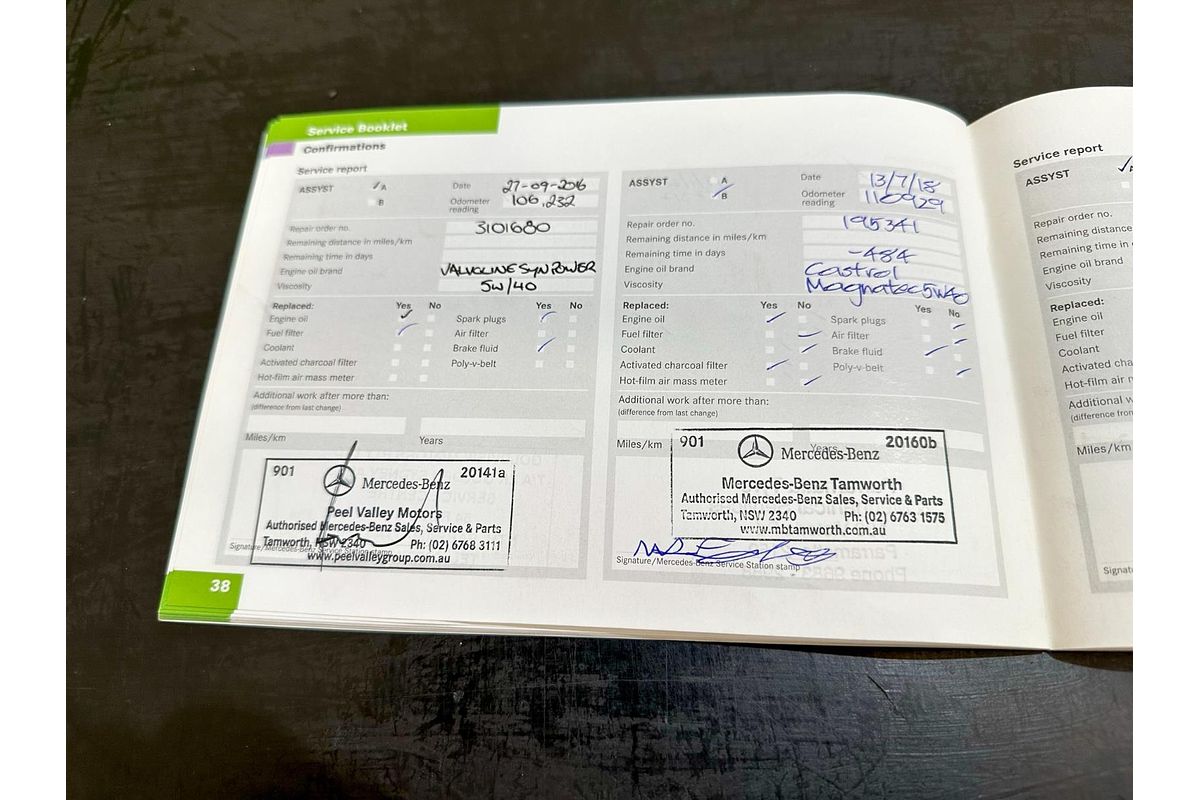 Service Booklet
Confirmations
Service report
ASSYST A B
Date 27-09-2016
Odometer reading 106,232
Repair order no. 3101680
Remaining distance in miles/km
Remaining time in days
Engine oil brand VALVOLINE SYN POWER
Viscosity 5W/40
Replaced: Yes No Yes No
Engine oil Spark plugs
Fuel filter Air filter
Coolant Brake fluid
Activated charcoal filter Poly-v-belt
Hot-film air mass meter
Additional work after more than:
(difference from last change)
Miles/km Years
901 20141a
Mercedes-Benz
Peel Valley Motors
Authorised Mercedes-Benz Sales, Service & Parts
Tamworth, NSW 2340 Ph: (02) 6768 3111
Signature/Mercedes-Benz Service Station stamp
www.peelvalleygroup.com.au
38
ASSYST A B
Date 13/7/18
Odometer reading 110929
Repair order no. 195341
Remaining distance in miles/km
Remaining time in days -484
Engine oil brand Castrol
Viscosity Magnatec 5W40
Replaced: Yes No Yes No
Engine oil Spark plugs
Fuel filter Air filter
Coolant Brake fluid
Activated charcoal filter Poly-v-belt
Hot-film air mass meter
Additional work after more than:
(difference from last change)
Miles/km Years
901 20160b
Mercedes-Benz
Mercedes-Benz Tamworth
Authorised Mercedes-Benz Sales, Service & Parts
Tamworth, NSW 2340 Ph: (02) 6763 1575
www.mbtamworth.com.au
Signature/Mercedes-Benz Service Station stamp
Service report
ASSYST
Repair order no.
Remaining distance
Remaining time in
Engine oil brand
Viscosity
Replaced:
Engine oil
Fuel filter
Coolant
Activated cha
Hot-film air m
Additional w
(difference from
Miles/km
Signat